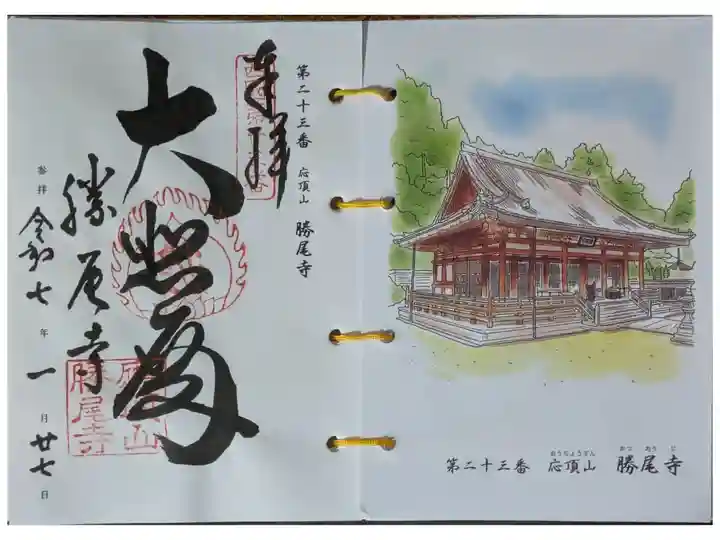 第二十三番 応頂山 勝尾寺
奉拝
大悲殿
勝尾寺
参拝 令和七年一月廿七日
勝尾寺
おうちょうざん かつ おう じ
第二十三番 応頂山 勝尾寺